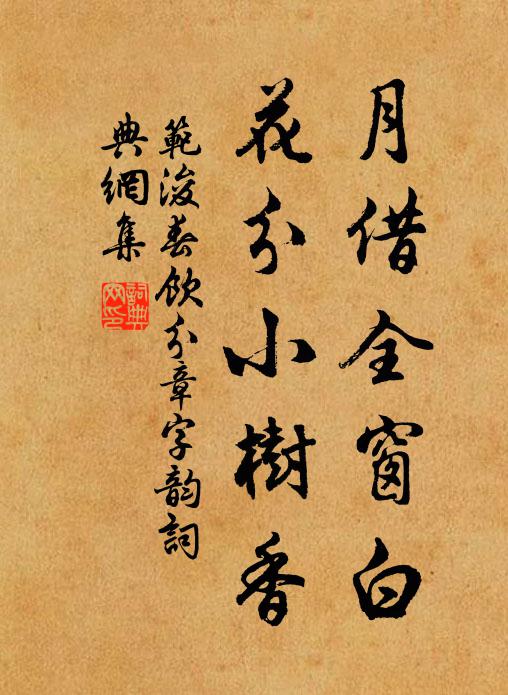 月借全窗白
花分小樹香
範浚春飲分章字韵詞
典網集
詞典網印